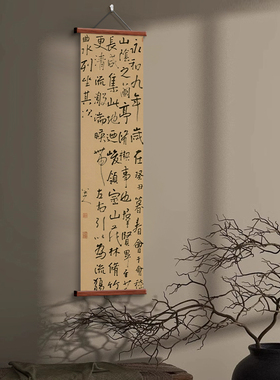 永和九年歲在癸丑暮春會于會稽
山陰之蘭亭脩稧事也羣賢畢至少
長咸集此地迺峻領崇山茂林脩竹
更清流激湍暎帶左右引以為流觴
曲水列坐其次